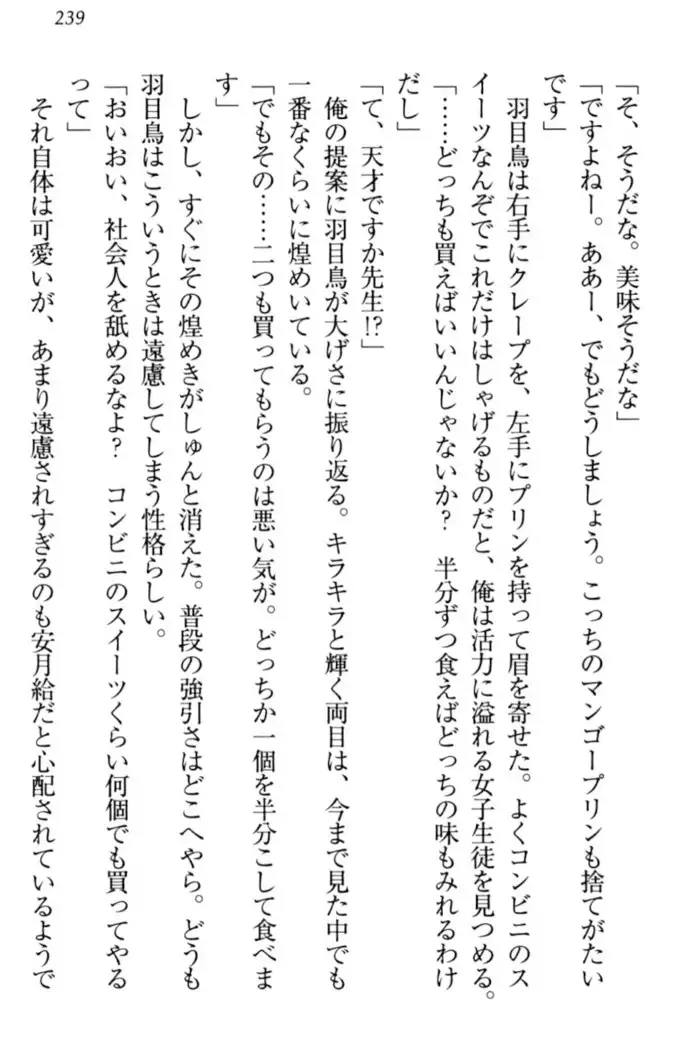 239
「そ、そうだな。美味そうだな」
「ですよねー。ああー、でもどうしましょう。こっちのマンゴープリンも捨てがたい
です」
　羽目鳥は右手にクレープを、左手にプリンを持って眉を寄せた。よくコンビニのス
イーツなんぞでこれだけはしゃげるものだと、俺は活力に溢れる女子生徒を見つめる。
「……どっちも買えばいいんじゃないか？　半分ずつ食えばどっちの味もみれるわけ
だし」
「て、天才ですか先生!?」
　俺の提案に羽目鳥が大げさに振り返る。キラキラと輝く両目は、今まで見た中でも
一番なくらいに煌めいている。
「でもその……二つも買ってもらうのは悪い気が。どっちか一個を半分こして食べま
す」
　しかし、すぐにその煌めきがしゅんと消えた。普段の強引さはどこへやら。どうも
羽目鳥はこういうときは遠慮してしまう性格らしい。
「おいおい、社会人を舐めるなよ？　コンビニのスイーツくらい何個でも買ってやる
って」
　それ自体は可愛いが、あまり遠慮されすぎるのも安月給だと心配されているようで